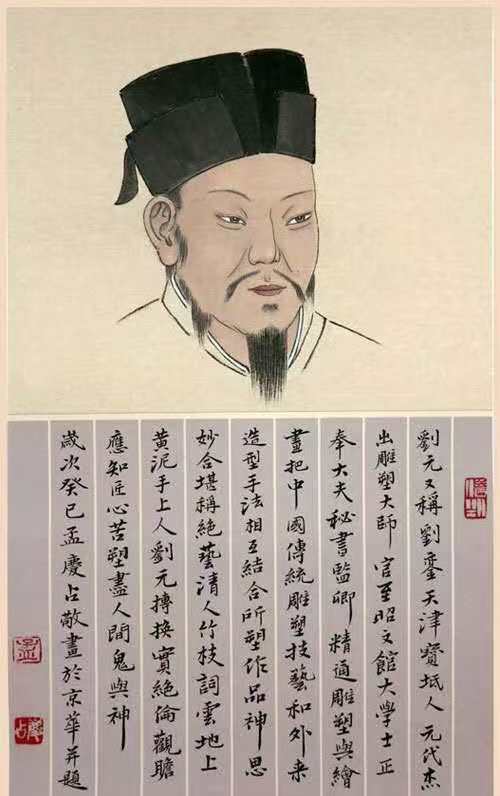 劉元又稱劉鑾天津寶坻人元代杰
出雕塑大師官至昭文館大學士正
奉大夫秘書監卿精通雕塑與繪
畫把中國傳統雕塑技藝和外来
造型手法相互結合所塑作品神思
妙合堪稱絕藝清人竹枝詞雲地上
黄泥手上人劉元摶換實絶倫觀瞻
應知匠心苦塑盡人間鬼與神
歲次癸巳孟慶占敬畫於京華并題